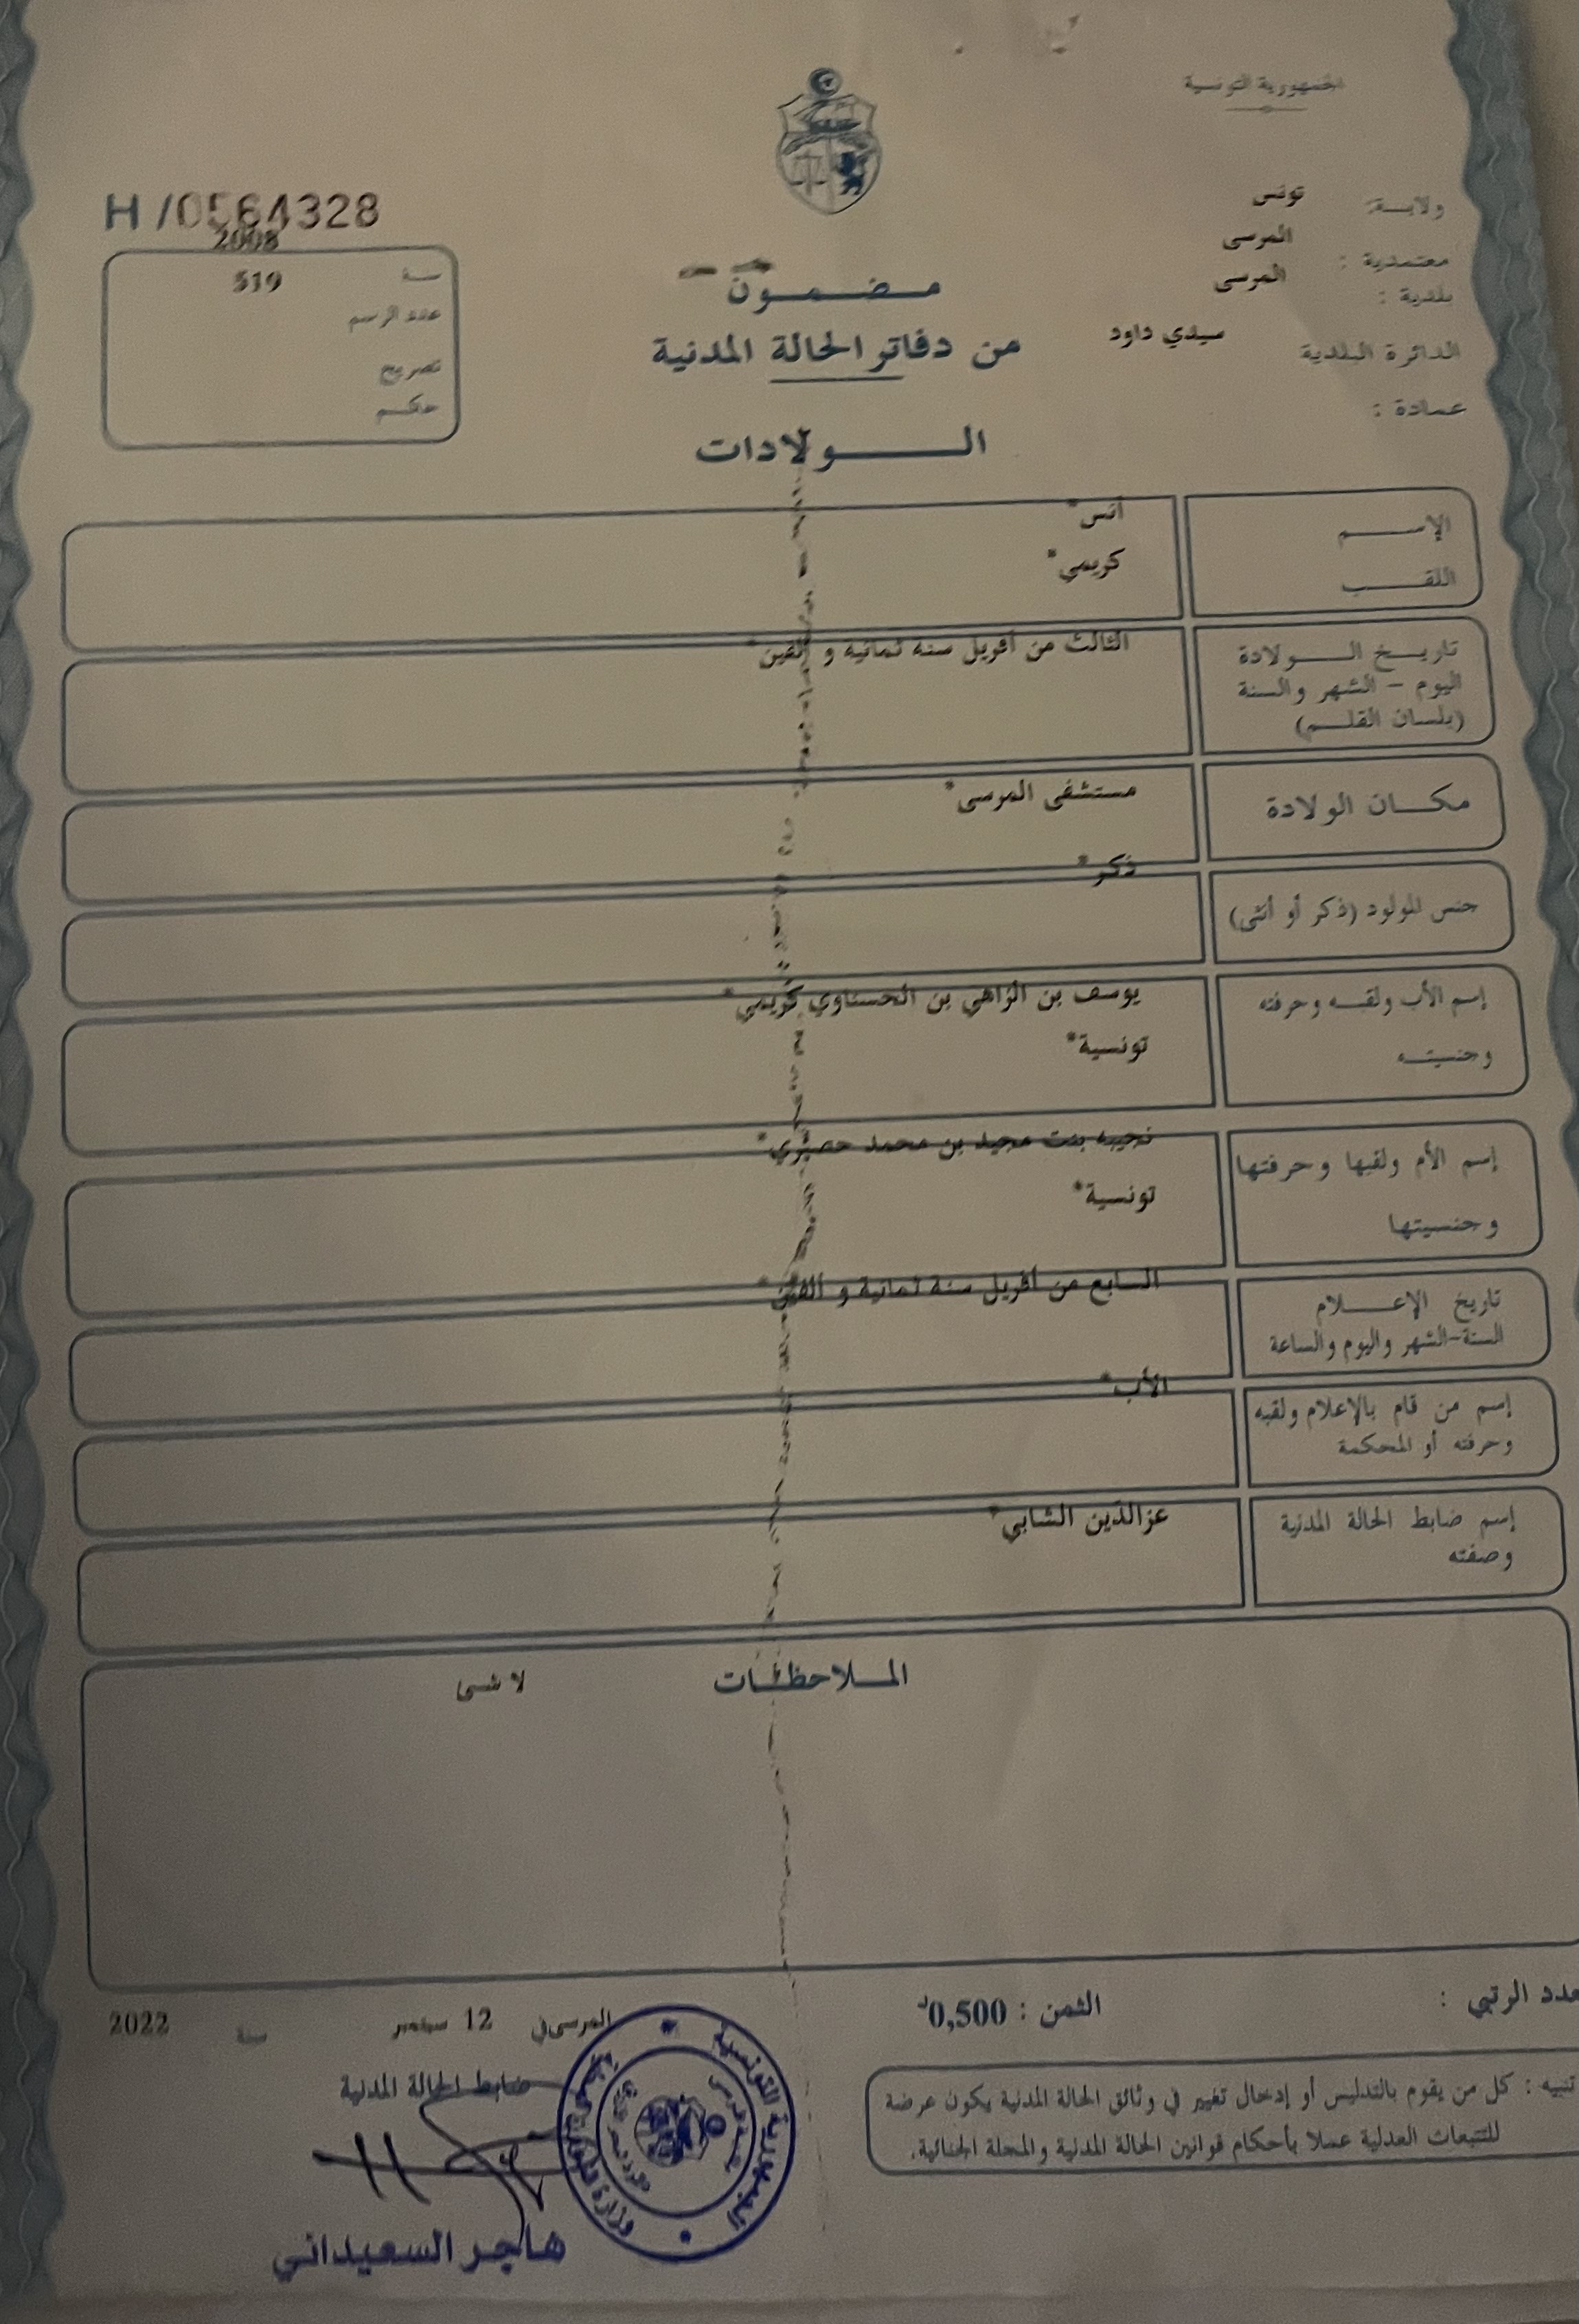 الجمهورية التونسية
ولاية: تونس
معتمدية : المرسى
بلدية : المرسى
الدائرة البلدية سيدي داود
عمادة :
H /0564328
2008
سنة 519
عدد الرسم
تصريح
حكم
مضمون
من دفاتر الحالة المدنية
الولادات
الإسم أنس*
اللقب كريمي*
تاريخ الولادة الثالث من أفريل سنة ثمانية و ألفين*
اليوم - الشهر والسنة
(بلسان القلم)
مكان الولادة مستشفى المرسى*
جنس المولود (ذكر أو أنثى) ذكر*
إسم الأب ولقبه وحرفته يوسف بن الزاهي بن الحسناوي كريمي*
وجنسيته تونسية*
إسم الأم ولقبها وحرفتها نجيبه بنت مجيد بن محمد
وجنسيتها تونسية*
تاريخ الإعلام السابع من أفريل سنة ثمانية و ألفين*
السنة-الشهر واليوم والساعة
إسم من قام بالإعلام ولقبه الأب*
وحرفته أو المحكمة
إسم ضابط الحالة المدنية عزالدين الشابي*
وصفته
الملاحظات لا شى
عدد الرتبي :
الثمن : 0,500د
المرسى في 12 سبتمبر سنة 2022
ضابط الحالة المدنية
تنبيه : كل من يقوم بالتدليس أو إدخال تغيير في وثائق الحالة المدنية يكون عرضة
للتتبعات العدلية عملا بأحكام قوانين الحالة المدنية والمجلة الجنائية.
الجمهورية التونسية
هاجر السعيداني